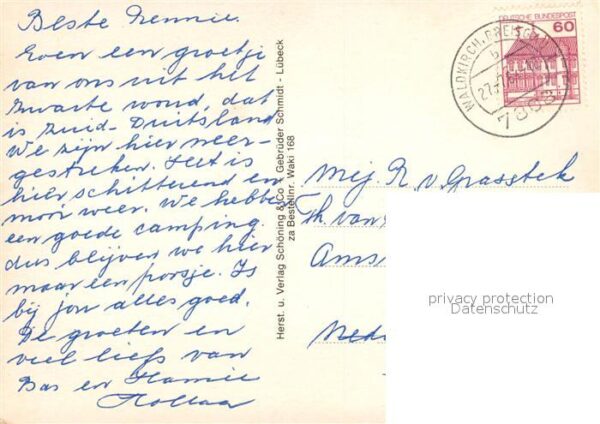 Beste Rennie.
Even een groetje
van ons uit het
Zwarte woud, dat
is Zuid-Duitsland
We zijn hier neer-
gestreken. Het is
hier schitterend en
mooi weer. We hebbe
een goede camping
dus blijven we hier
maar een porsje. Is
bij jou alles goed.
De groeten en
veel liefs van
Bas en
DEUTSCHE BUNDESPOST
60
WALDKIRCH, BREISGAU
7808
Mej R v. Grasstek
Th. van
Ams
Nede
Herst. u. Verlag Schöning & Co · Gebrüder Schmidt - Lübeck
za Bestellnr. Waki 168
privacy protection
Datenschutz